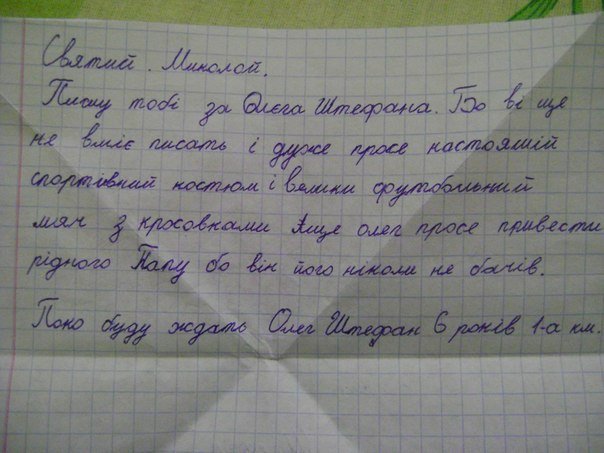 Святий. Миколай.
Пишу тобі за Олєга Штефана. Бо ві ще
не вміє писать і дуже просе настояшій
спортивний костюм і велики футбольний
мяч з кросовками А ище олег просе привести
рідного Папу бо він його ніколи не бачів.
Поко буду ждать Олег Штефан 6 років 1-а кл.